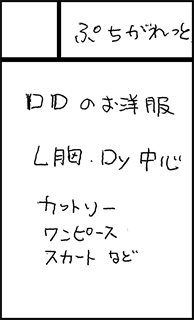 ぷちがれっと
DDのお洋服
L胸・Dy中心
カットソー
ワンピース
スカートなど